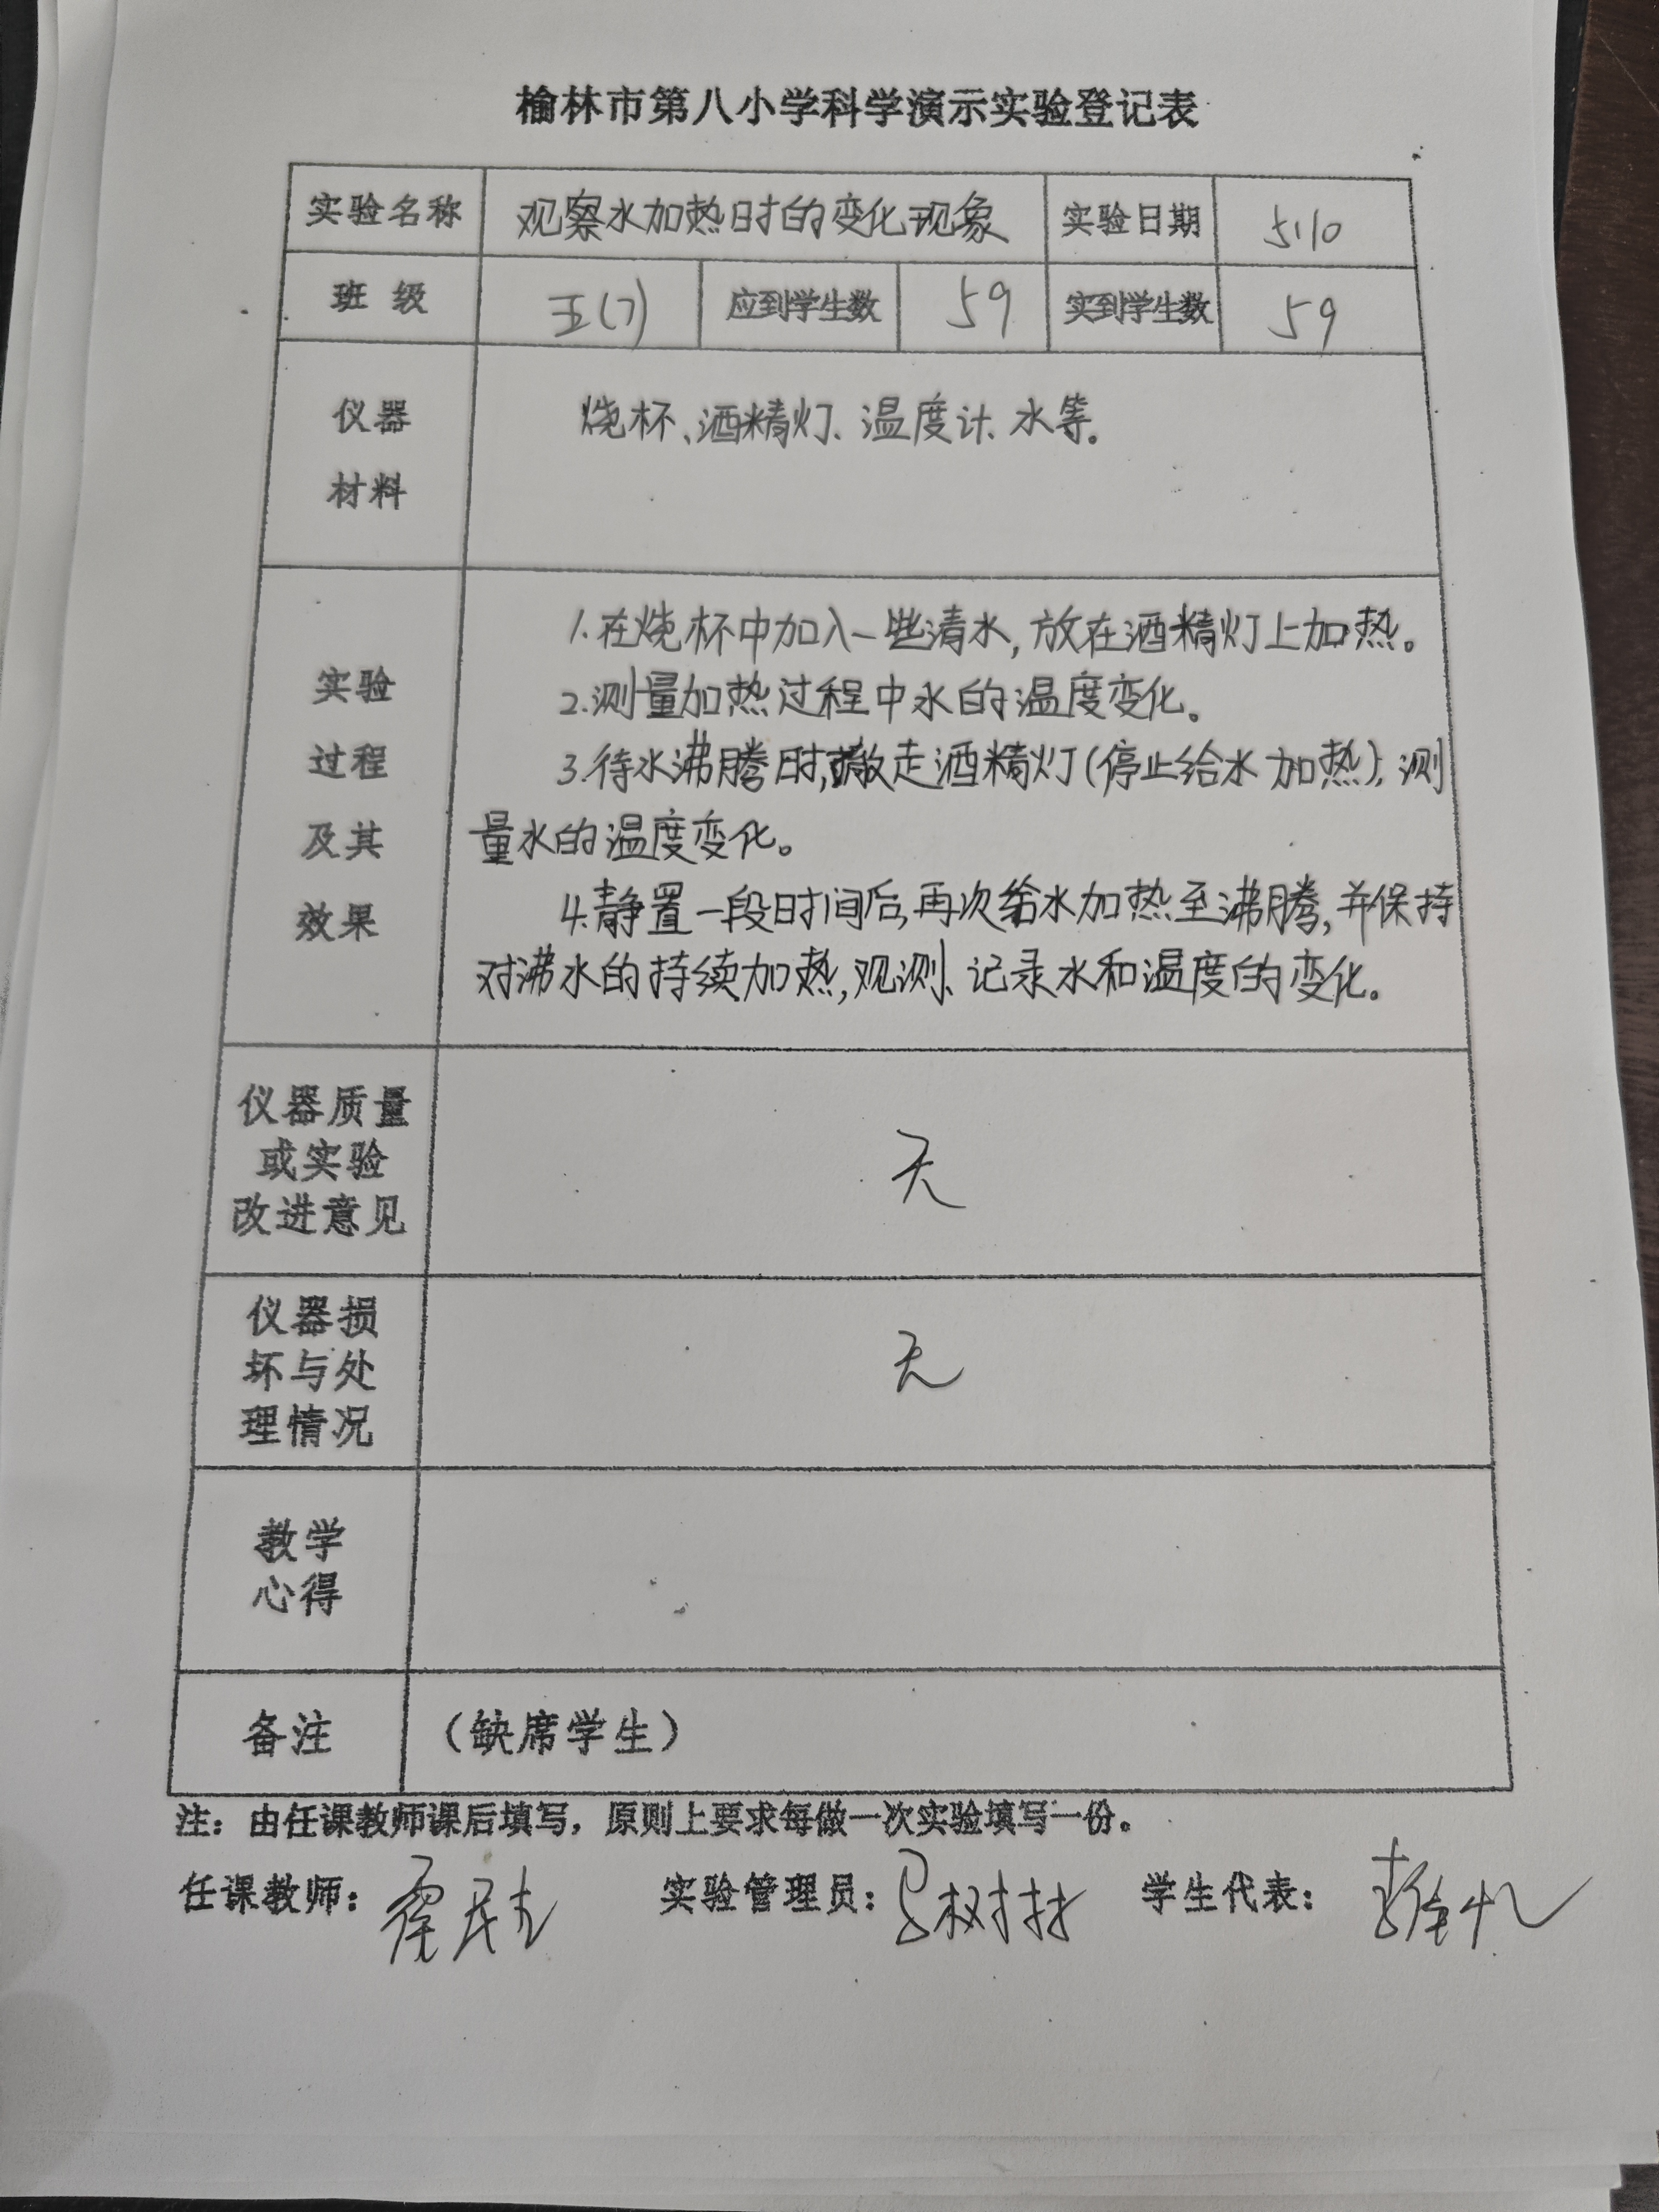 榆林市第八小学科学演示实验登记表
实验名称 观察水加热时的变化现象 实验日期 5.10
班 级 五(7) 应到学生数 59 实到学生数 59
仪器
材料
烧杯、酒精灯、温度计、水等。
实验
过程
及其
效果
1.在烧杯中加入一些清水,放在酒精灯上加热。
2.测量加热过程中水的温度变化。
3.待水沸腾时,撤走酒精灯(停止给水加热),测
量水的温度变化。
4.静置一段时间后,再次给水加热至沸腾,并保持
对沸水的持续加热,观测、记录水和温度的变化。
仪器质量
或实验
改进意见
无
仪器损
坏与处
理情况
无
教学
心得
备注 (缺席学生)
注：由任课教师课后填写，原则上要求每做一次实验填写一份。
任课教师： 实验管理员： 学生代表：